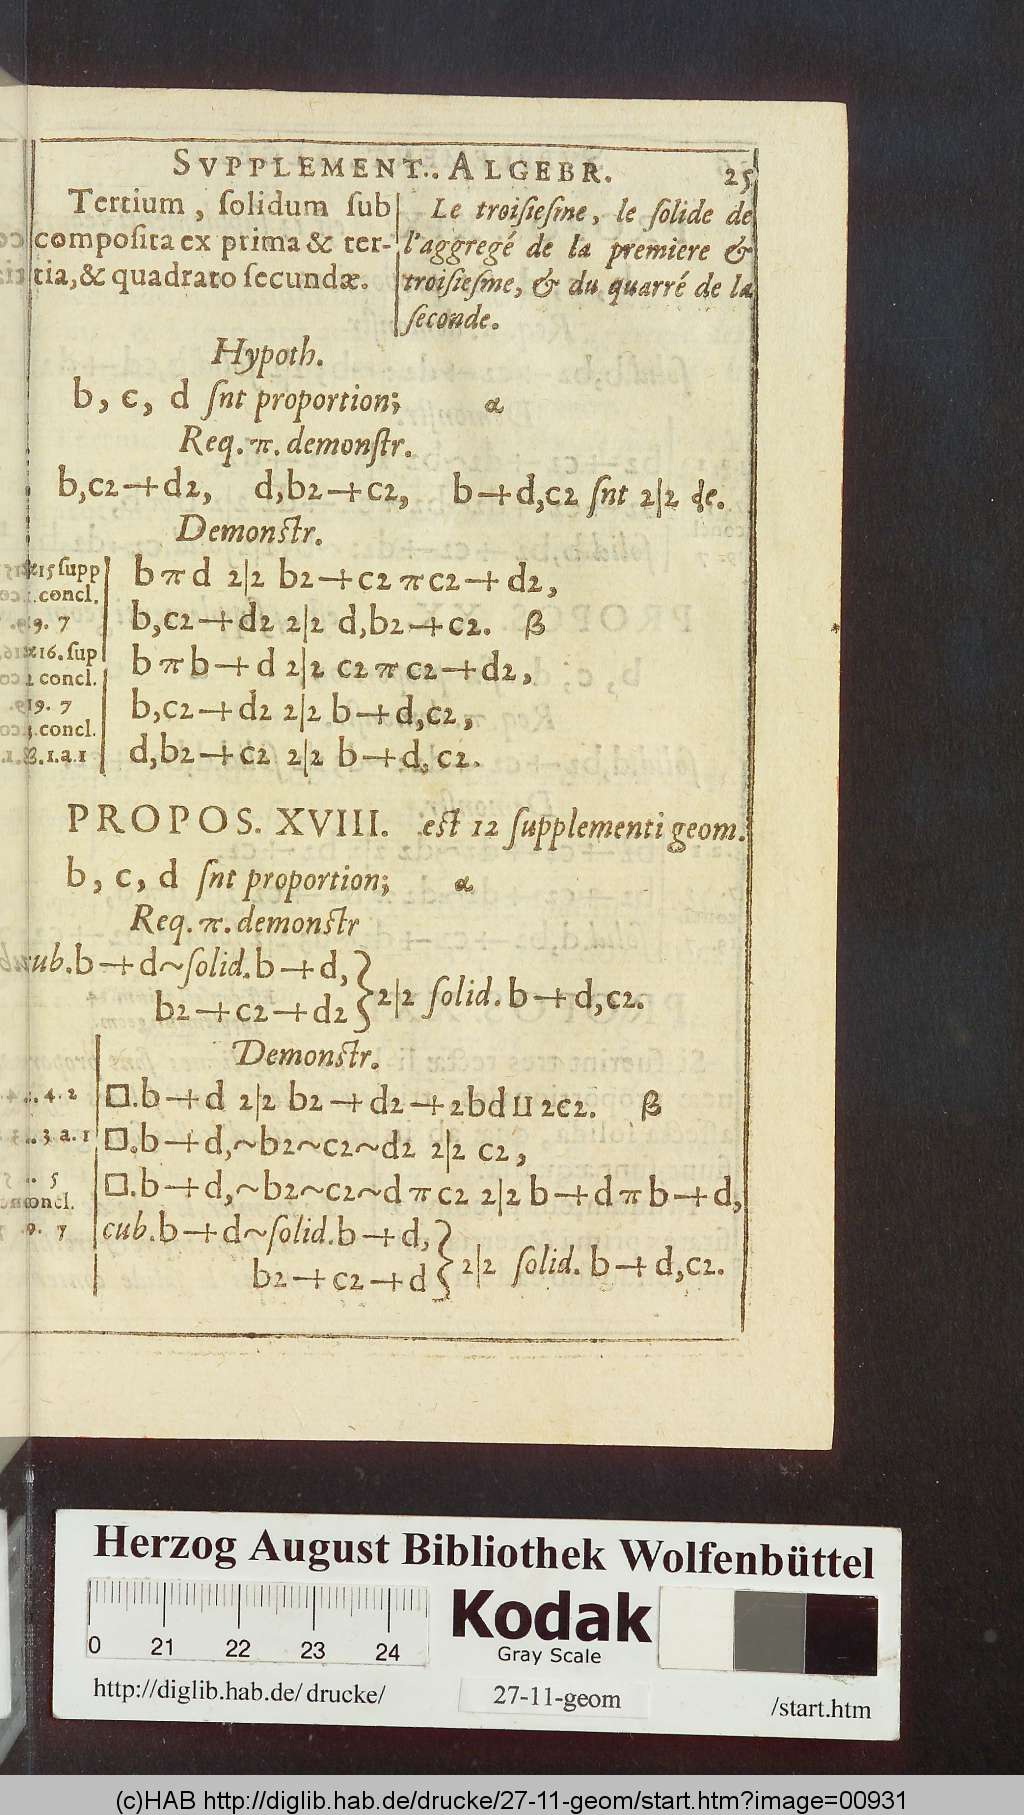 SVPPLEMENT. ALGEBR. 25
Tertium, ſolidum ſub
compoſita ex prima & ter-
tia, & quadrato ſecundæ.
Le troiſieſme, le ſolide de
l'aggregé de la premiere &
troiſieſme, & du quarré de la
ſeconde.
Hypoth.
b, c, d ſnt proportion; α
Req. π. demonſtr.
b,c2+d2, d,b2+c2, b+d,c2 ſnt 2|2 de.
Demonſtr.
15 ſupp b π d 2|2 b2+c2 π c2+d2,
concl.
9. 7 b,c2+d2 2|2 d,b2+c2. β
16. ſup b π b+d 2|2 c2 π c2+d2,
concl.
19. 7 b,c2+d2 2|2 b+d,c2,
concl.
β.1.a.1 d,b2+c2 2|2 b+d,c2.
PROPOS. XVIII. est 12 ſupplementi geom.
b, c, d ſnt proportion; α
Req. π. demonſtr
cub.b+d~ſolid.b+d,
b2+c2+d2 } 2|2 ſolid. b+d,c2.
Demonſtr.
4. 2 □.b+d 2|2 b2+d2+2bd II 2c2. β
3.a.1 □.b+d,~b2~c2~d2 2|2 c2,
5 □.b+d,~b2~c2~d π c2 2|2 b+d π b+d,
concl.
9. 7 cub.b+d~ſolid.b+d,
b2+c2+d } 2|2 ſolid. b+d,c2.
Herzog August Bibliothek Wolfenbüttel
0 21 22 23 24
Kodak
Gray Scale
http://diglib.hab.de/drucke/ 27-11-geom /start.htm
(c)HAB http://diglib.hab.de/drucke/27-11-geom/start.htm?image=00931